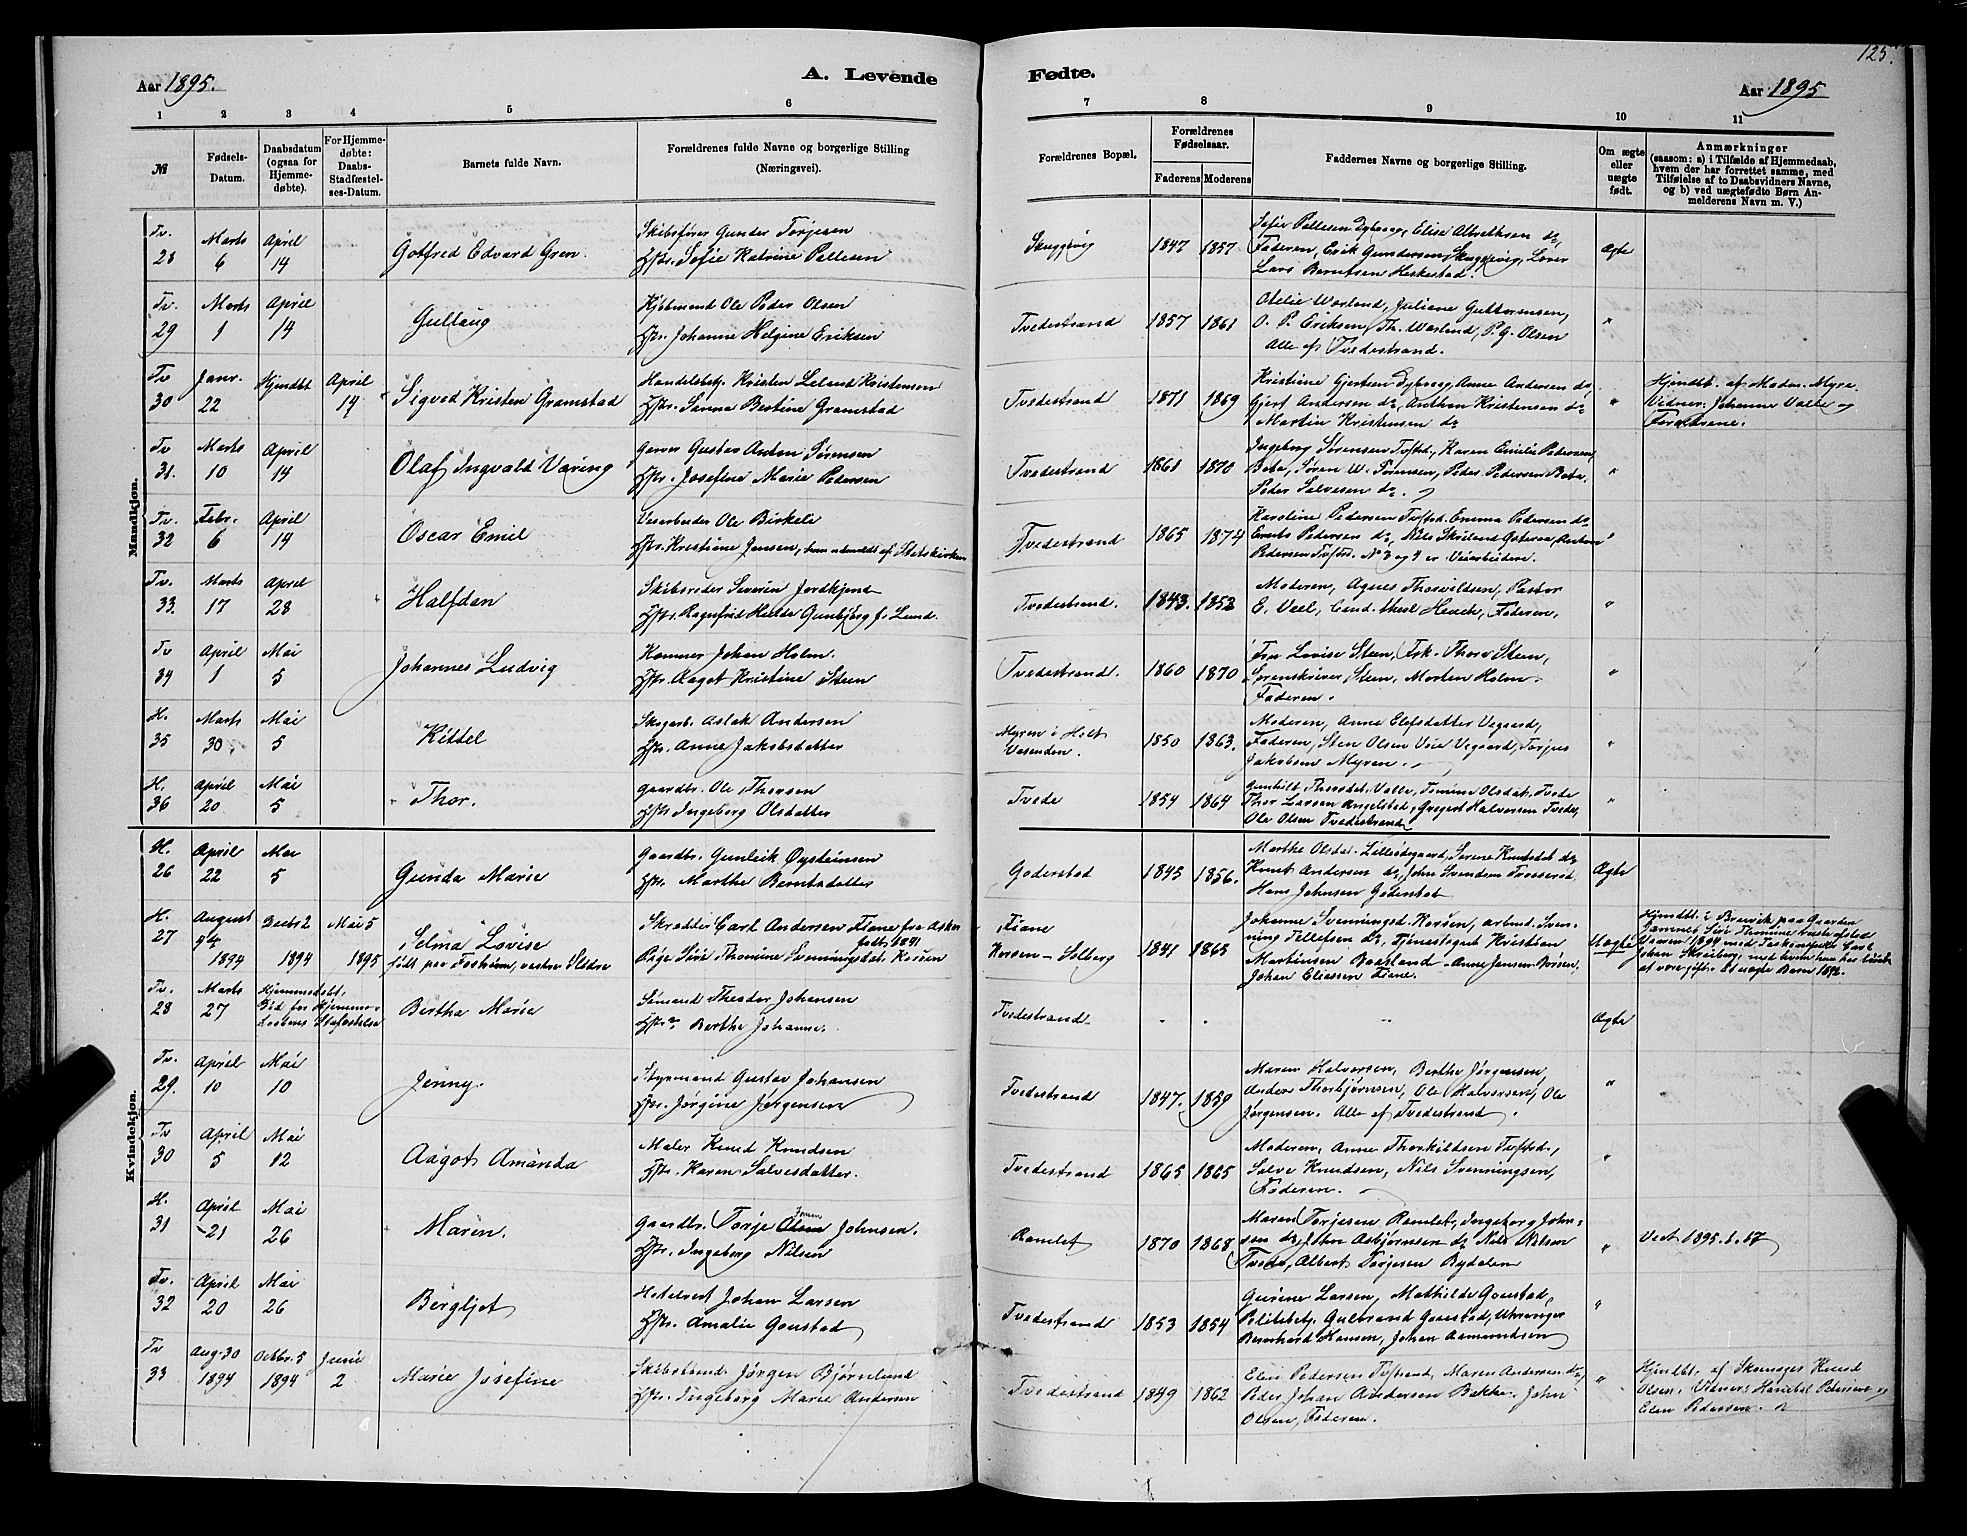 125.
Aar 1895. A. Levende Fødte. Aar 1895
1 2 3 4 5 6 7 8 9 10 11
№
Fødsels-Datum.
Daabsdatum (ogsaa for Hjemmedøbte).
For Hjemmedøbte: Daabs Stadfæstelses-Datum.
Barnets fulde Navn.
Forældrenes fulde Navne og borgerlige Stilling (Næringsvei).
Forældrenes Bopæl.
Forældrenes Fødselsaar.
Faderens Moderens
Faddernes Navne og borgerlige Stilling.
Om ægte eller uægte født.
Anmærkninger
(saasom: a) i Tilfælde af Hjemmedaab, hvem der har forrettet samme, med Tilføielse af to Daabsvidners Navne, og b) ved uægtefødte Børn Anmelderens Navn m. V.)
Mandkjøn.
Tv. 28 Marts 6 April 14 Gotfred Edvard Gren.
Skibsfører Gunder Torjesen
Hstr. Sofie Katrine Pallesen
1847 1857
Faderen, Erik Gundersen
Lars Berntsen Heskestad.
Ægte
Tv. 29 Marts 1 April 14 Gullaug
Kjøbmand Ole Peder Olsen
Hstr. Johanne Helgine Eriksen
Tvedestrand 1857 1861
Otelie Warlund, Juliane Guttormsen,
O. P. Eriksen, Th. Warlund, P. G. Olsen
Alle af Tvedestrand.
"
Tv 30 Janr. 22 Hjmdbt April 14 Sigved Kristen Gramstad
Handelsbetj. Kristen Leland Kristensen
Hstr. Sanna Bertine Gramstad
Tvedestrand 1871 1869
Kristine Gjertsen Dybvaag, Anne Andersen do,
Gjert Andersen do, Anthon Kristensen do
Martin Kristensen do
"
Hjmdbt. af Madm. Myre.
Vidner: Johanne Valle og
Forældrene.
Tv 31. Marts 10 April 14 Olaf Ingvald Væring
Garver Gustav Anton Sørensen
Hstr. Josefine Marie Petersen
Tvedestrand 1861 1870
Ingeborg Sørensen Karen Emilie Pedersen
Søren W. Sørensen, Peder Pedersen
Peder Salvesen do.
"
Tv. 32 Febr. 6 April 14 Oscar Emil
Veiarbeider Ole Birkeli
Hstr. Kristiane Jensen, hun udmeldt af Statskirken
Tvedestrand 1865 1874
Karoline Pedersen Emma Pedersen do
Pedersen do, Nils
Pedersen No 3 og 4 er Veiarbeidere.
"
Tv. 33. Marts 17 April 28 Halfdan
Skibsreder Severin Jordkjend
Hstr. Ragnfrid Hulda Gunbjørg f. Lund.
Tvedestrand. 1843. 1852
Moderen, Agnes Thorvildsen, Pastor
E. Veel, Cand. theol Heuch, Faderen,
"
Tv 34 April 1 Mai 5 Johannes Ludvig
Johan Holm.
Hstr. Aagot Kristine Steen
Tvedestrand. 1860 1870
Fru Lovise Steen, Frk. Thora Steen,
Sorenskriver Steen, Morten Holm
Faderen.
"
H. 35 Marts 30. Mai 5 Kittel
Skogarb. Aslak Andersen
Hstr. Anne Jakobsdatter
Myren i Holt
Vasenden. 1850 1863.
Moderen, Anne Olefsdatter Vegaard,
Faderen, Sten Olsen Vegaard, Torjus
Jakobsen Myren.
"
H. 36 April 20 Mai 5 Thor.
Gaardbr. Ole Thorsen
Hstr Ingeborg Olsdatter
Tvede 1854 1864
Gunhild Thorsdat. Valle, Olsdat. Tvede
Thor Larsen Angelstad, Gregert Halvorsen Tvede,
Ole Olsen Tvedestrand
"
Kvindekjøn.
H. 26 April 22 Mai 5 Gunda Marie
Gaardbr. Gunleik Øysteinsen
Hstr. Marthe Berntsdatter
Goderstad 1845 1856.
Marthe Olsdat. Lilleødegaard, Serene Knudsdat do
Knut Andersen do, John Svendsen
Hans Johnsen Goderstad
Ægte
H. 27 August 1894 Decbr 2 1894 Mai 5 1895 Selma Lovise
født paa
Skrædder Carl Andersen Fiane fra Asker
født 1841
Pige Siri Thomine Svenningsdat. Korsen
Fiane
Korsen — Solberg 1841 1865
Johanne Svenningsd. Korsen, arbmd. Svenning Tellefsen do, Tjenestegut Kristian
Martinsen Baasland — Anne Jensen
Johan Eliassen Fiane.
Uægte
Hjmdbt. i Brevik paa Gaarden
Tv. 28 Marts 27 Hjemmedøbt. Død før Hjemmedaabens Stafæstelse Bertha Marie
Sømand Theodor Johansen
Hstr Berthe Johanne.
Tvedestrand Ægte
Tv. 29. April 10 Mai 10 Jenny.
Styrmand Gustav Johansen
Hstr. Jørgine Jørgensen
Tvedestrand 1847. 1859
Maren Halvorsen, Berthe Jørgensen,
Anders Thorbjørnsen, Ole Halvorsen, Ole
Jørgensen. Alle af Tvedestrand.
"
Tv 30 April 5 Mai 12 Aagot Amanda
Maler Knud Knudsen
Hstr. Karen Salvesdatter.
Tvedestrand 1865 1865
Moderen, Anne Thorkildsen
Salve Knudsen, Nils Svenningsen,
Faderen.
"
H. 31 April 21 Mai 26 Maren.
Gaardbr. Torje Johnsen.
Hstr. Ingeborg Nilsen
Ramlet 1870 1868
Maren Torjesen Ramlet, Ingeborg Johnsen do, John Asbjørnsen do Nils Nilsen
Tvede, Albert Torjesen Bydalen
"
Tv. 32 April 20 Mai 26 Bergljot
Hotelvert Johan Larsen
Hstr. Amalie Goustad
Tvedestrand 1853 1854
Gurine Larsen, Mathilde Goustad,
Politibetj. Gulbrand Goustad, Uhrmager
Bernhard Hansen, Johan Aamundsen
"
Tv 33 Aug. 30 1894 Octbr. 5 1894 Juni 2 Marie Josefine
Skibstømd Jørgen Bjørnlund
Hstr. Ingeborg Marie Andersen
Tvedestrand 1849 1862
Elen Pedersen Maren Andersen do,
Peder Johan Andersen Bakke, John
Olsen, Faderen.
"
Hjmdbt. af Skomager Knud
Olsen. Vidner: Hanibal Pedersen og
Elen Pedersen.